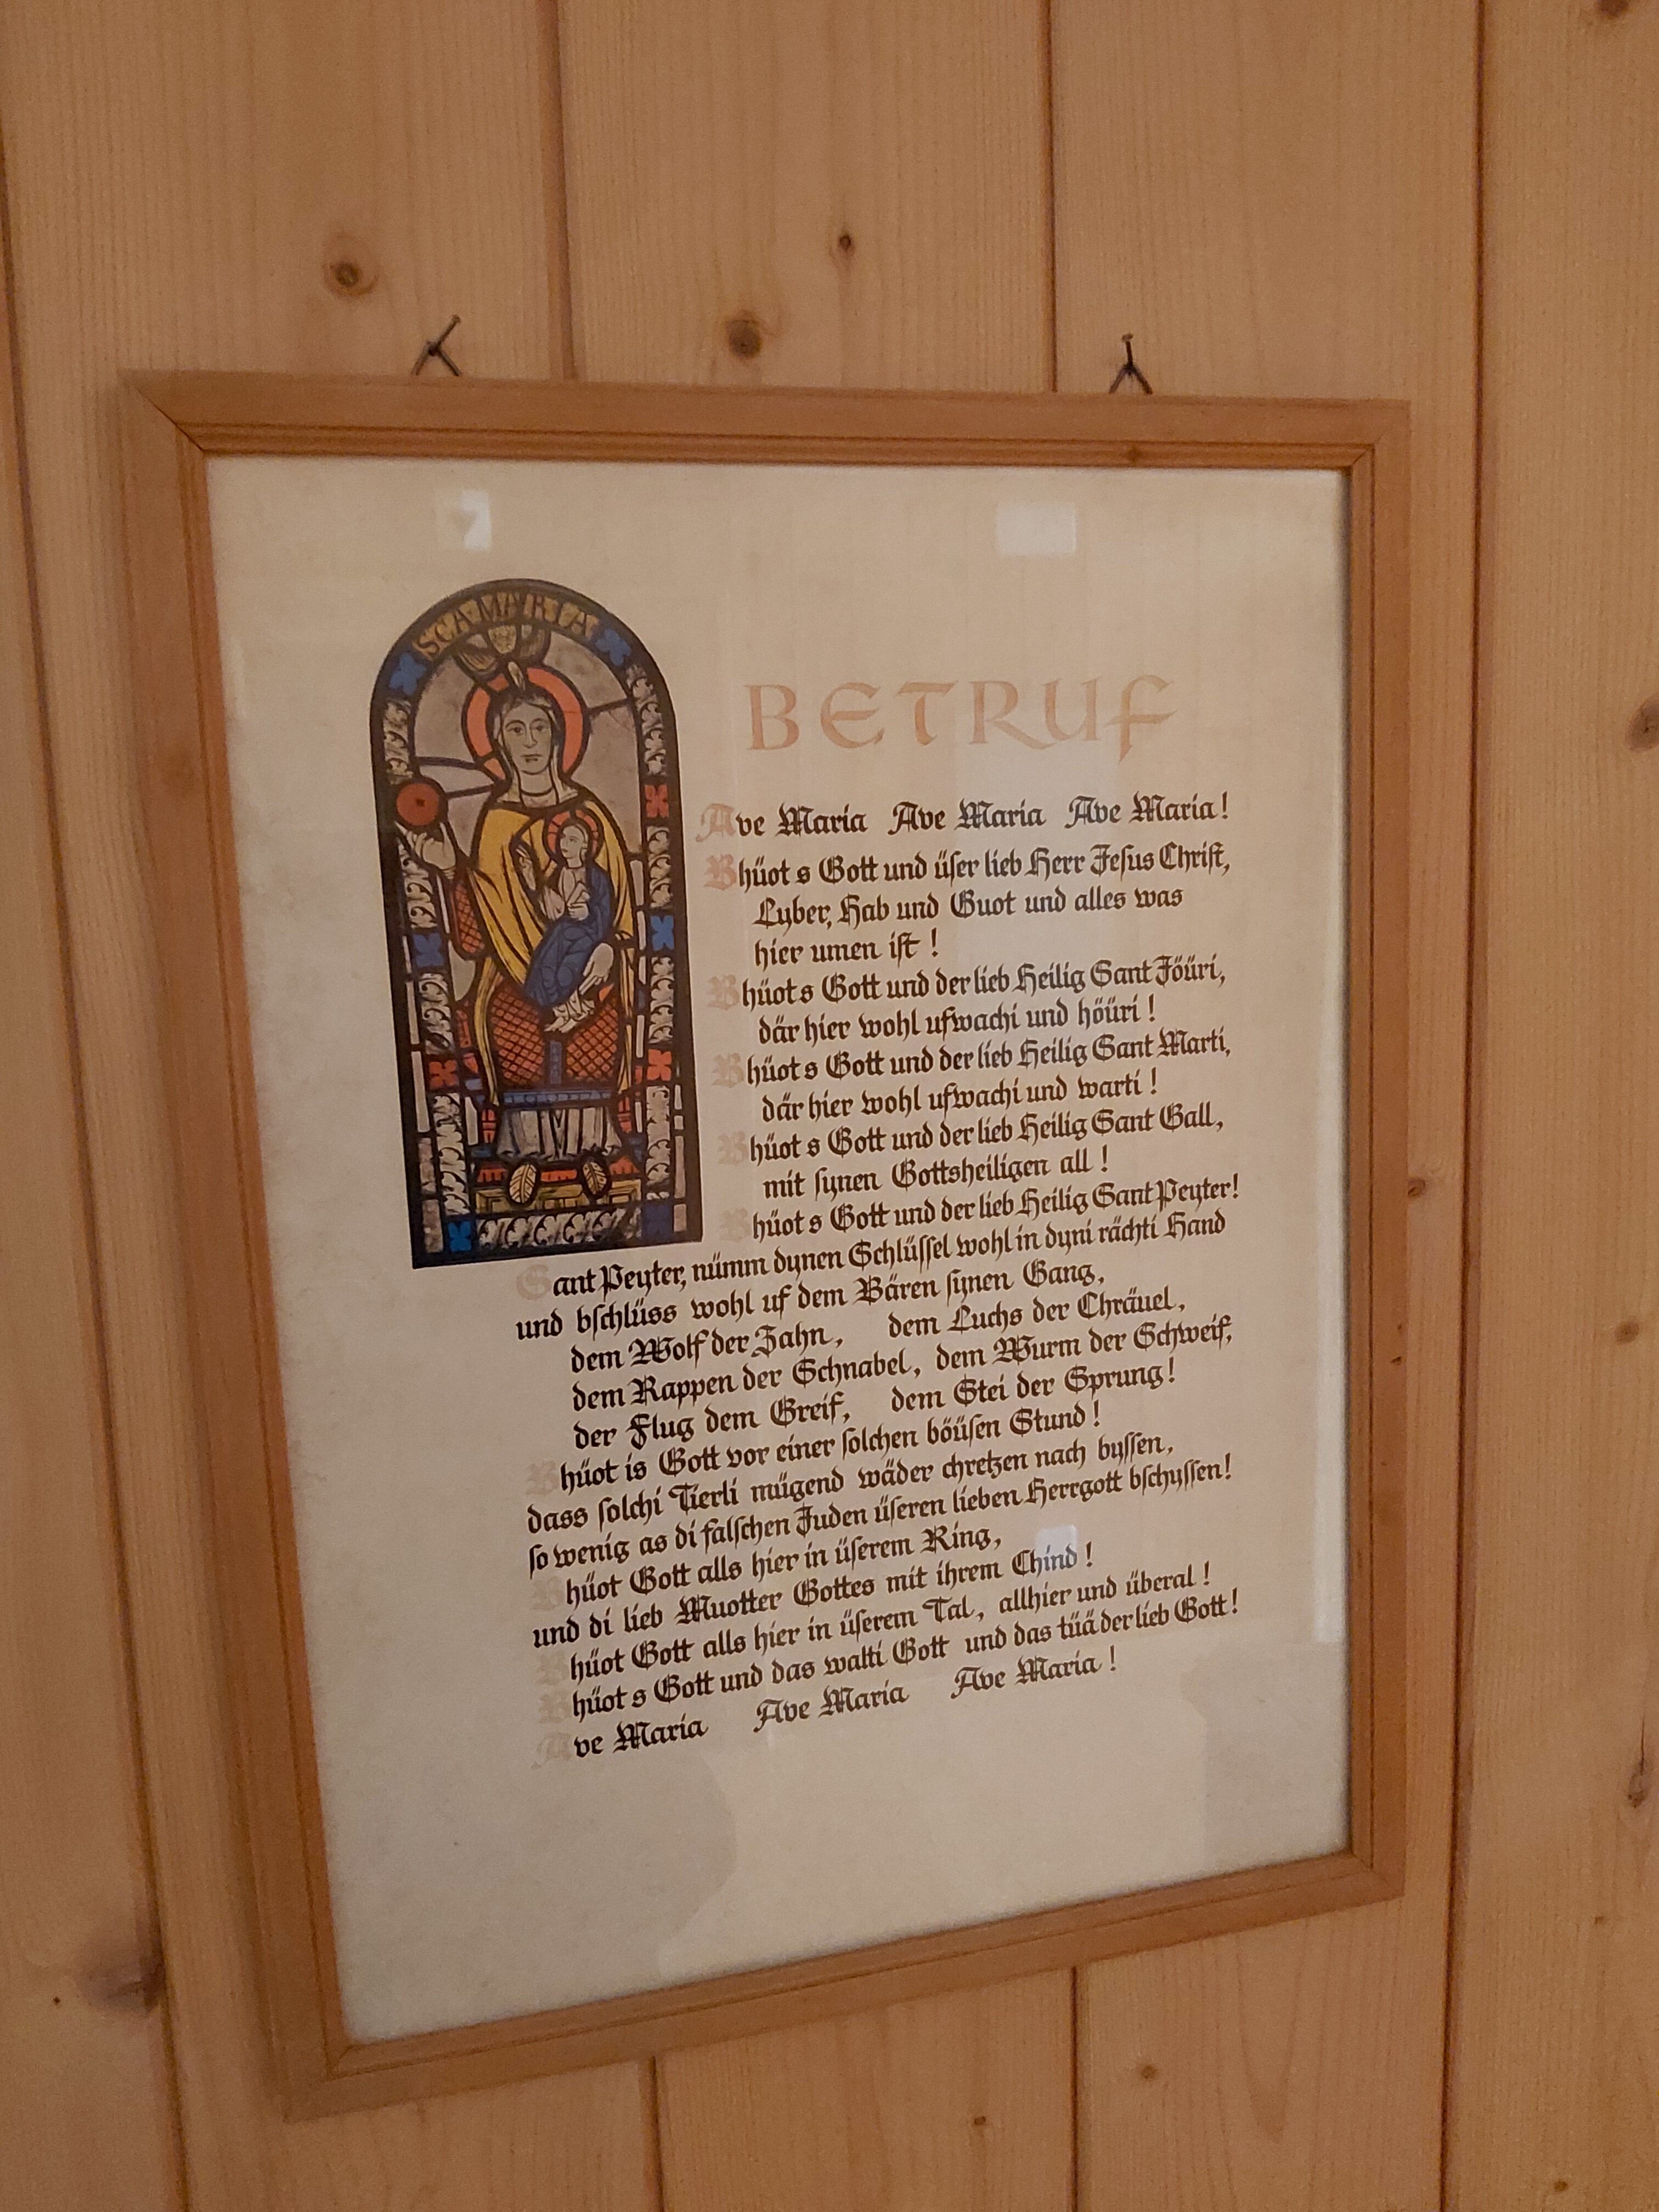 SCA MARIA
BETRUF
Ave Maria Ave Maria Ave Maria!
Bhüot s Gott und üser lieb Herr Jesus Christ,
Lyber, Hab und Guot und alles was
hier umen ist!
Bhüot s Gott und der lieb Heilig Sant Jöüri,
där hier wohl ufwachi und höüri!
Bhüot s Gott und der lieb Heilig Sant Marti,
där hier wohl ufwachi und warti!
Bhüot s Gott und der lieb Heilig Sant Gall,
mit synen Gottsheiligen all!
Bhüot s Gott und der lieb Heilig Sant Peyter!
Sant Peyter, nümm dynen Schlüssel wohl in dyni rächti Hand
und bschlüss wohl uf dem Bären synen Gang,
dem Wolf der Zahn, dem Luchs der Chräuel,
dem Rappen der Schnabel, dem Wurm der Schweif,
der Flug dem Greif, dem Stei der Sprung!
Bhüot is Gott vor einer solchen böüsen Stund!
dass solchi Tierli mügend wäder chretzen nach byssen,
so wenig as di falschen Juden üseren lieben Herrgott bschyssen!
Bhüot Gott alls hier in üserem Ring,
und di lieb Muotter Gottes mit ihrem Chind!
Bhüot Gott alls hier in üserem Tal, allhier und überal!
Bhüot s Gott und das walti Gott und das tüä der lieb Gott!
Ave Maria Ave Maria Ave Maria!